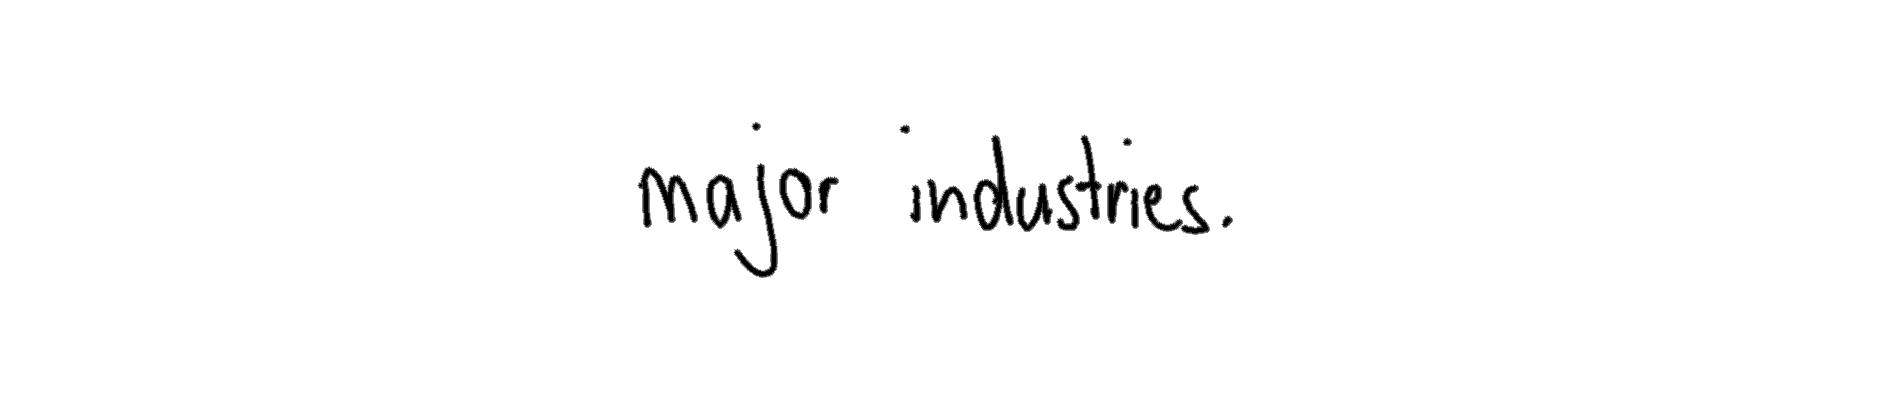 major industries.